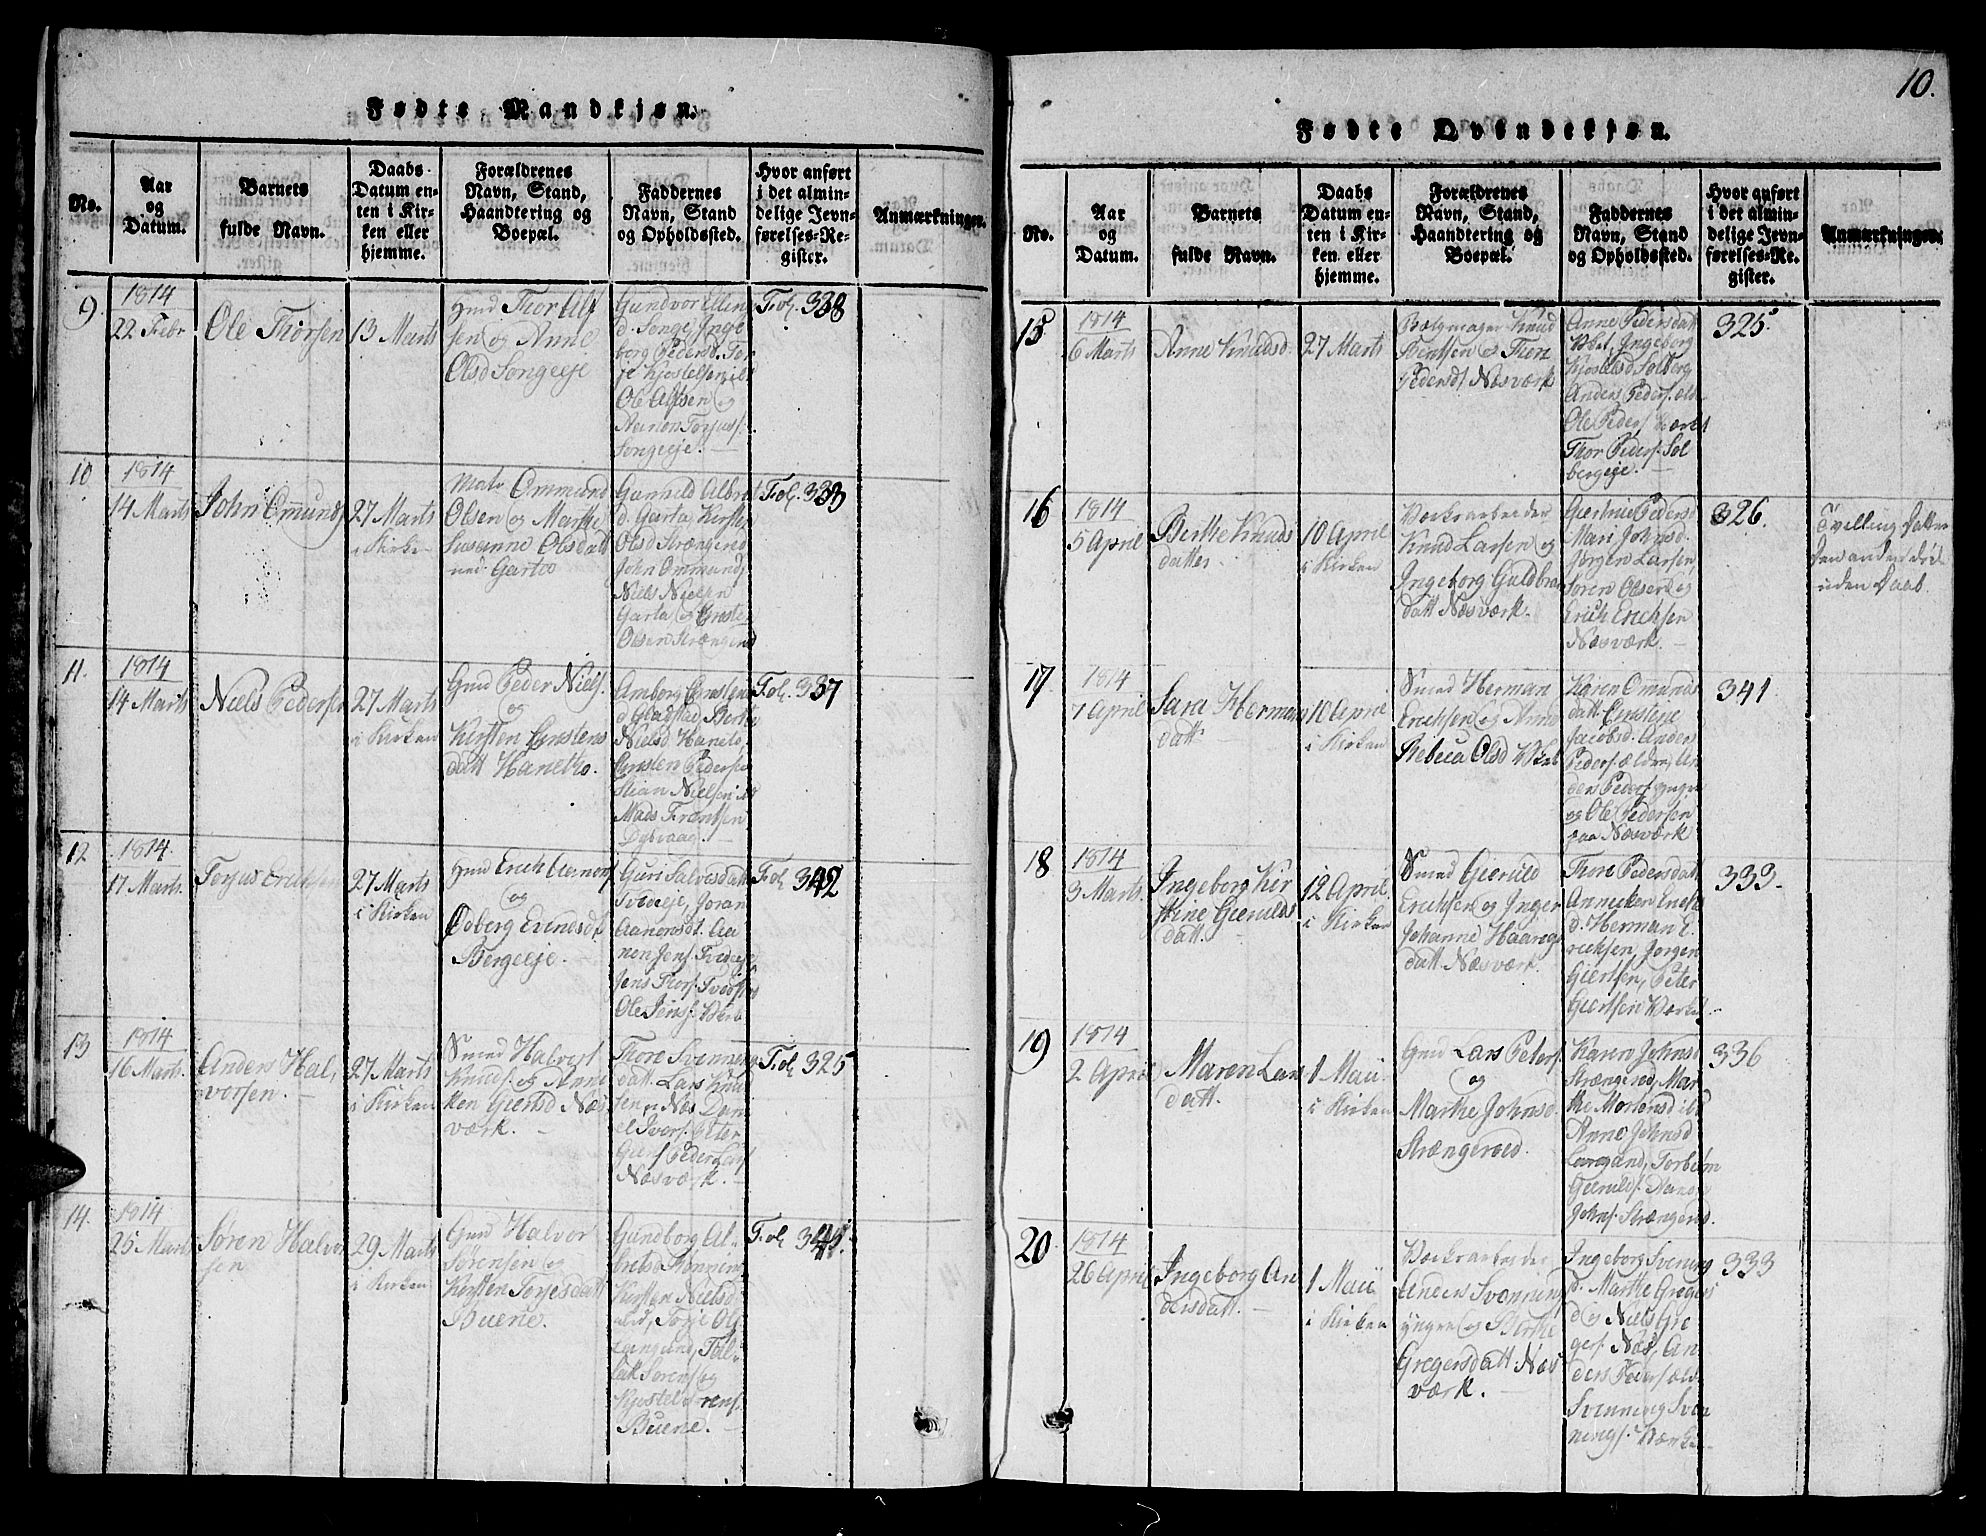 Fødte Mandkjøn.
No.
Aar
og
Datum.
Barnets
fulde Navn.
Daabs
Datum en-
ten i Kir-
ken eller
hjemme.
Forældrenes
Navn, Stand,
Haandtering og
Boepæl.
Faddernes
Navn, Stand
og Opholdssted.
Hvor anført
i det almin-
delige Jevn-
førelses-Re-
gister.
Anmærkninger.
9.
1814
22 Febr
Ole Thorsen
13 Marts
Gmd Thor Alf
sen og Anne
Olsd Songeeje
Gundvor Elling
d. Songe, Inge
borg Pedersd. Tor
je Kjostelsen ibd
Ole Alfsen og
Aanon Torjuss.
Songeeje.
Fol. 328
10
1814
14 Marts
John Omunds
27 Marts
i Kirken
Matr Ommund
Olsen og Marthe
Susanne Olsdatt
ned. Garta
Gunneld Albret
d. Garta, Kirsten
Olsd Strængered
John Ommunds
Niels Nielsen
Garta og Crusten
Olsen Strængered
Fol. 333
11.
1814
14 Marts
Niels Pedersen
27 Marts
i Kirken
Gmd Peder Niels.
og
Kirsten Crustens
datt Hanetho.
Amborg Crustens
d Gladstad Berthe
Nielsd Haneto,
Crusten Pedersen
Stian Nielsen ibd
Mads Frantsen
Dybvaag.
Fol. 337
12
1814
17 Marts.
Torjus Erichsen
27 Marts
i Kirken
Gmd Erich Aanons
og
Odberg Evindsd.
Bergeeje.
Guri Salvesdatt
Tvedeeje, Joran
Aanonsdt. Aa
non Jens.
Jens Thors.
Ole Jens.
Fol. 342
13
1814
16 Marts.
Anders Hal,
vorsen.
27 Marts
i Kirken
Smed Halvor
Knuds. og Anne
ken Giertsd Næs
værk.
Thore Svennung
datt. Lars Knud
sen, Næs Dani
el Ivers. Peter
Giers. Peder Lars
Næsværk.
Fol 325
14.
1814
25 Marts
Søren Halvor
sen
29 Marts
i Kirken
Gmd Halvor
Sørensen og
Kirsten Torjesdatt
Buene.
Gundborg Al,
bretsd
Kirsten Nielsd
ibid, Torje Ols
Lungund, Tal,
lak Sørens og
Kjostel Sørens.
Buene.
Fol 341.
10.
Fødte Qvindekjøn.
No.
Aar
og
Datum.
Barnets
fulde Navn.
Daabs
Datum en-
ten i Kir-
ken eller
hjemme.
Forældrenes
Navn, Stand,
Haandtering og
Boepæl.
Faddernes
Navn, Stand
og Opholdssted.
Hvor anført
i det almin-
delige Jevn-
førelses-Re-
gister.
Anmærkninger.
15
1814
6 Marts
Anne Knudsd.
27 Marts
Bælgmager Knud
Bentsen og Thore
Pedersd. Næsværk
Anne Pedersdatt
Ingeborg
Kjostelsd Solberg
Anders Peders. æld.
Ole Peders. Værket
Thor Peders. Sol
bergeje.
325.
16
1814
5 April
Berthe Knuds
datter.
10 April
i Kirken
Værksarbeider
Knud Larsen og
Ingeborg Guldbran
datt Næsværk.
Giertrue Pedersd
Mari Johnsd.
Jørgen Larsen,
Søren Olsen og
Erich Erichsen
Næsværk.
326.
Tvilling datter
den anden døde
uden Daab
17
1814
7 April
Sara Herman
datt
10 April
i Kirken
Smed Herman
Erichsen og Anne
Rebeca Olsd
Karen Omunds
datt Ernstine
Jacobsd. Anders
Peders. ældre, An
ders Peders yngre
og Ole Pedersen
paa Næsværk
341
18
1814
3 Marts
Ingeborg Kir
stine Gierulds
datt.
12 April
i Kirken
Smed Gieruld
Erichsen og Inger
Johanne Haaregs
datt Næsværk.
Thore Pedersdatt
Anneken Erichs
d. Herman E,
richsen, Jørgen
Giertsen, Peter
Giertsen Værket.
333.
19
1814
2 April
Maren Lars
datt.
1 Maii.
i Kirken
Gmd Lars Peters.
og
Marthe Johnsd.
Strængeroed.
Karen Johnsd
Strængered, Mar
the Mortensd ibd
Anne Johnsd
Lungand, Torbiørn
Gierulds. Aanon
Johns. Strængered.
336
20
1814
26 April
Ingeborg An
dersdatt.
1 Maii
i Kirken
Værksarbeider
Anders Svenning
yngre og Birthe
Gregersdatt Næs
værk.
Ingeborg Svening
d. Marthe Gregers
d og Niels Gre
gers. Næs, An
ders Peders. æld.
Svenning Sven
nings. Værket.
333